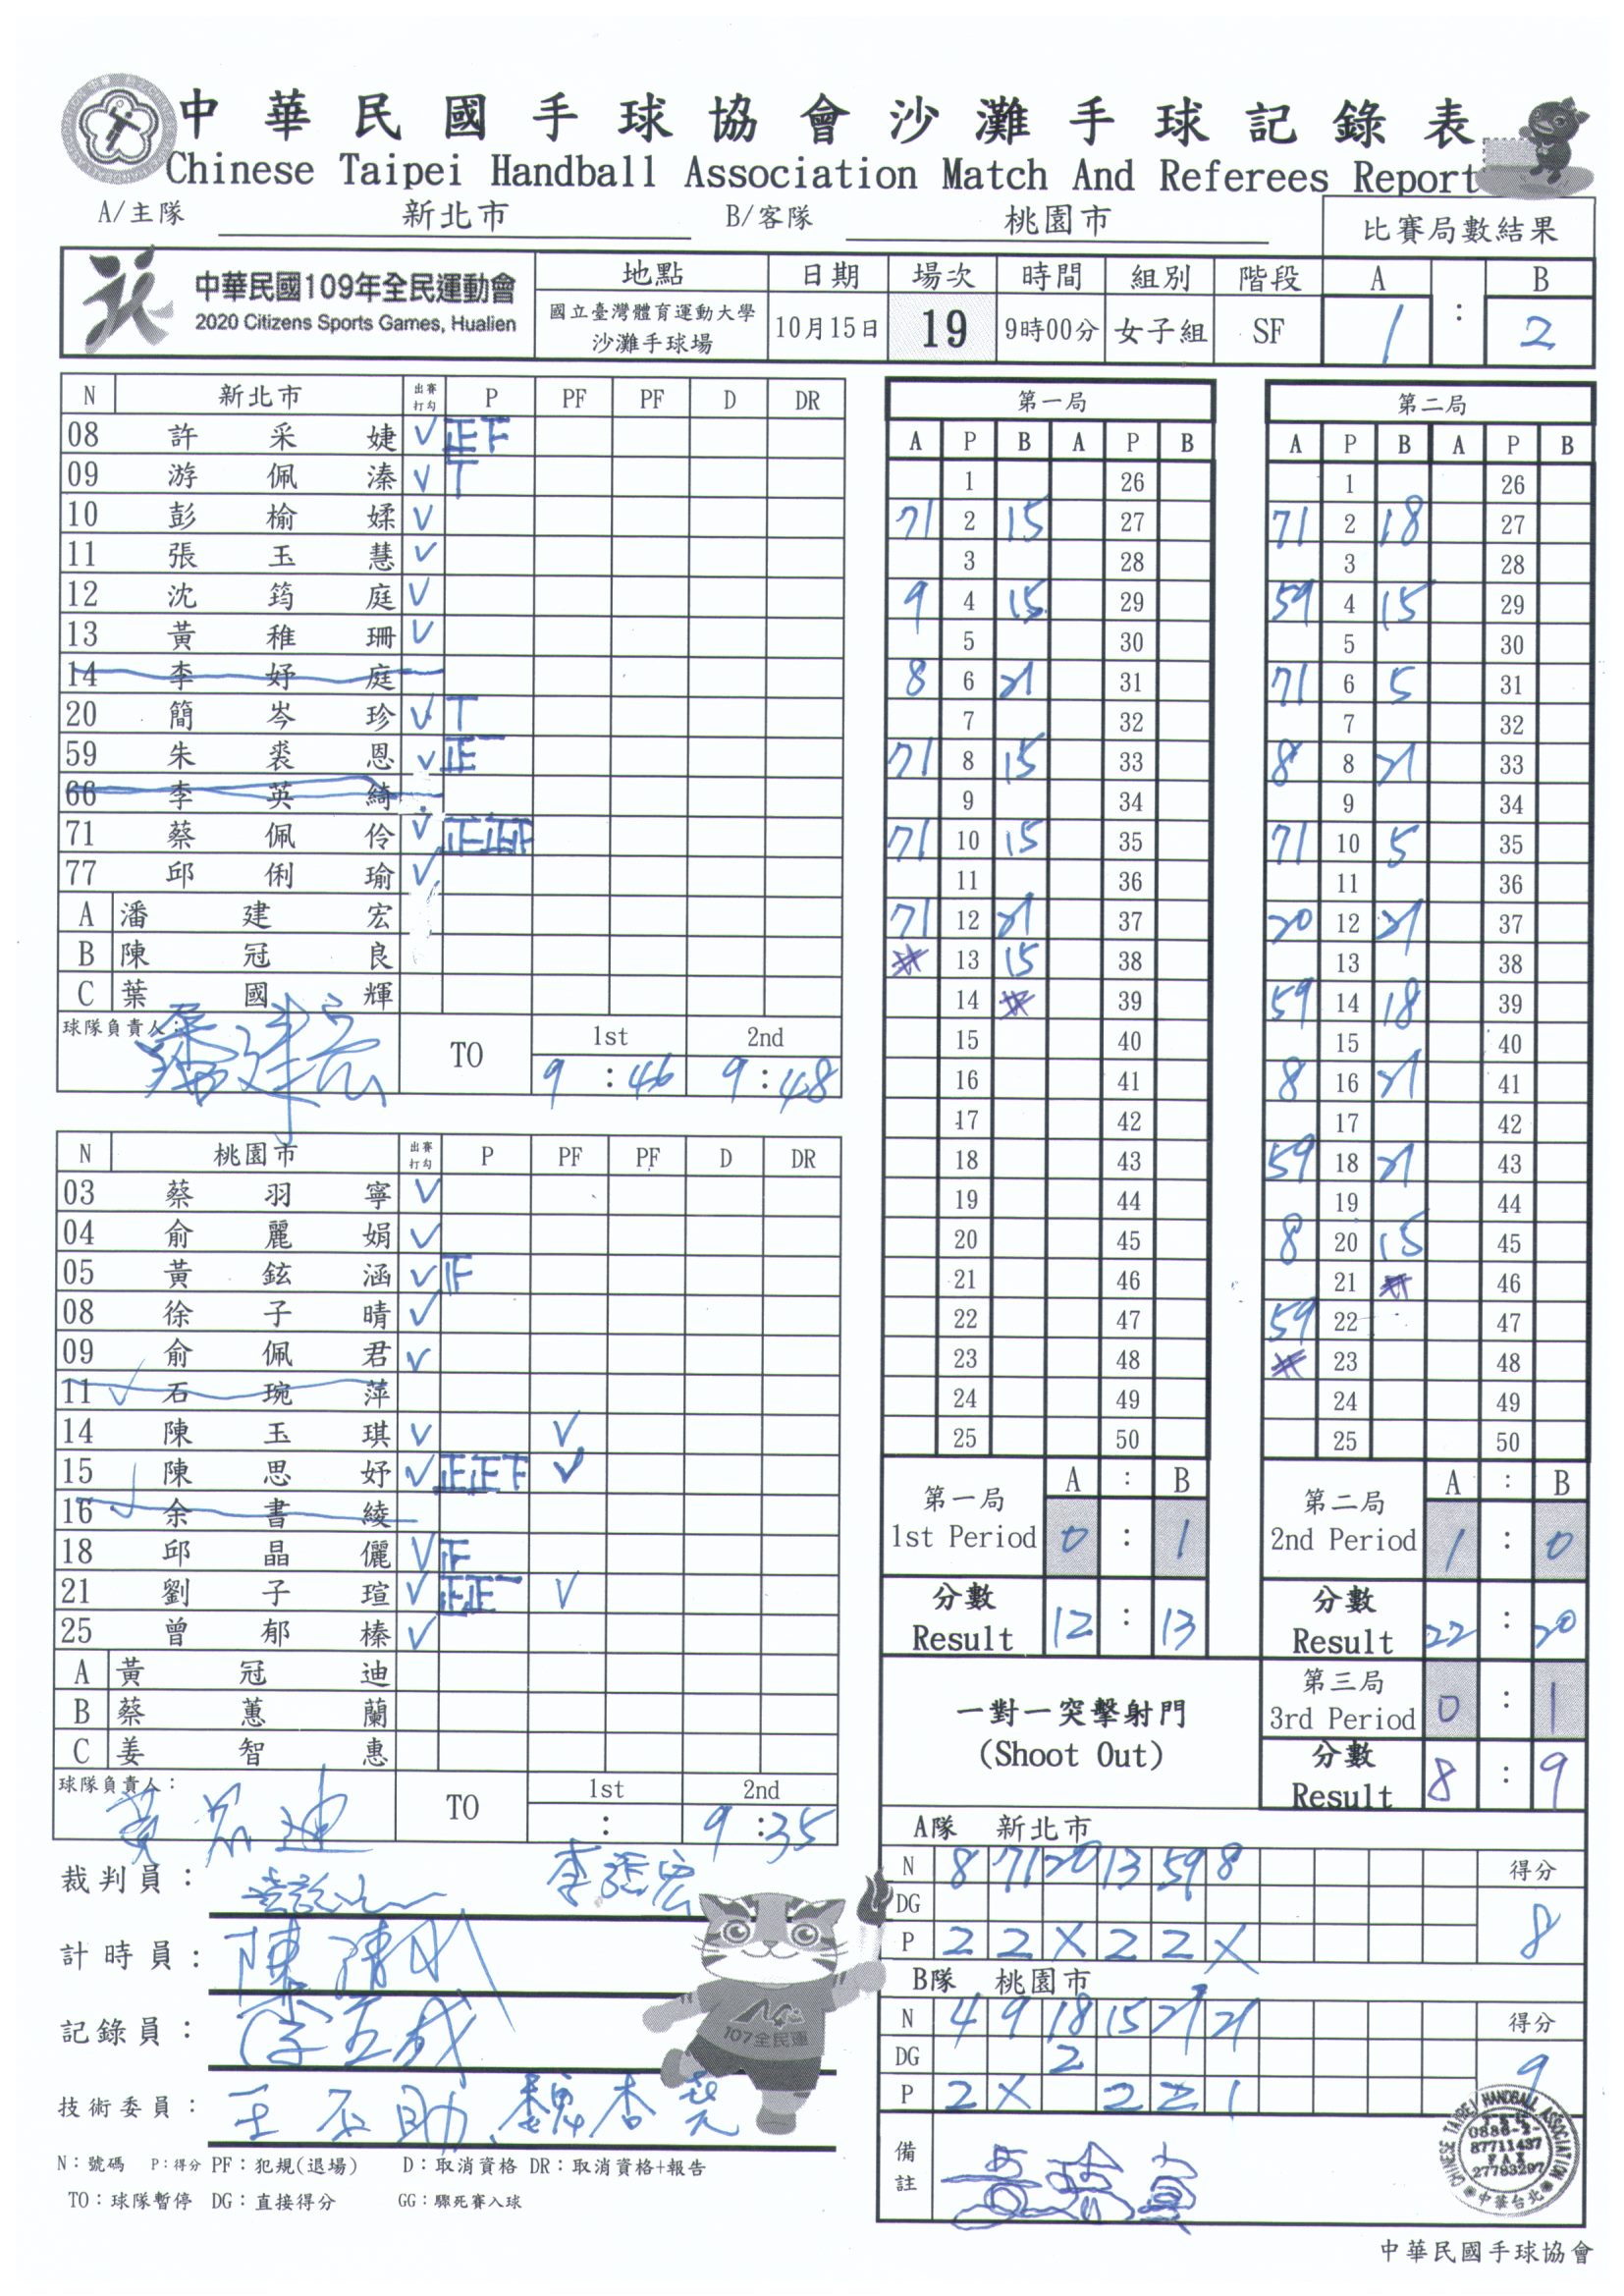 中華民國手球協會沙灘手球記錄表
Chinese Taipei Handball Association Match And Referees Report
A/主隊 新北市 B/客隊 桃園市 比賽局數結果
中華民國109年全民運動會
2020 Citizens Sports Games, Hualien
地點 日期 場次 時間 組別 階段 A : B
國立臺灣體育運動大學
沙灘手球場
10月15日 19 9時00分 女子組 SF 1 2
N 新北市 出賽打勾 P PF PF D DR
08 許采婕 ✓ 正下
09 游佩溱 ✓ T
10 彭榆媃 ✓
11 張玉慧 ✓
12 沈筠庭 ✓
13 黃稚珊 ✓
14 李妤庭
20 簡岑珍 ✓ T
59 朱裘恩 ✓ 正一
66 李英綺
71 蔡佩伶 ✓
77 邱俐瑜 ✓
A 潘建宏
B 陳冠良
C 葉國輝
球隊負責人: 潘建宏
TO 1st 2nd
9:46 9:48
N 桃園市 出賽打勾 P PF PF D DR
03 蔡羽寧 ✓
04 俞麗娟 ✓
05 黃鉉涵 ✓
08 徐子晴 ✓
09 俞佩君 ✓
11 石琬萍
14 陳玉琪 ✓ ✓
15 陳思妤 ✓ 正正下 ✓
16 余書綾
18 邱晶儷 ✓
21 劉子瑄 ✓ 正正一 ✓
25 曾郁榛 ✓
A 黃冠迪
B 蔡蕙蘭
C 姜智惠
球隊負責人: 黃冠迪
TO 1st 2nd
: 9:35
裁判員:
計時員:
記錄員:
技術委員:
107全民運
N:號碼 P:得分 PF:犯規(退場) D:取消資格 DR:取消資格+報告
TO:球隊暫停 DG:直接得分 GG:驟死賽入球
第一局
A P B A P B
1 26
71 2 15 27
3 28
9 4 15 29
5 30
8 6 21 31
7 32
71 8 15 33
9 34
71 10 15 35
11 36
71 12 21 37
13 15 38
14 39
15 40
16 41
17 42
18 43
19 44
20 45
21 46
22 47
23 48
24 49
25 50
第一局 A : B
1st Period 0 : 1
分數
Result 12 : 13
第二局
A P B A P B
1 26
71 2 18 27
3 28
59 4 15 29
5 30
71 6 5 31
7 32
8 8 21 33
9 34
71 10 5 35
11 36
20 12 21 37
13 38
59 14 18 39
15 40
8 16 21 41
17 42
59 18 21 43
19 44
8 20 15 45
21 46
59 22 47
23 48
24 49
25 50
第二局 A : B
2nd Period 1 : 0
分數
Result 22 : 20
一對一突擊射門
(Shoot Out)
第三局
3rd Period 0 : 1
分數
Result 8 : 9
A隊 新北市
N 8 71 20 13 59 8 得分
DG 8
P 2 2 X 2 2 X
B隊 桃園市
N 4 9 18 15 21 21 得分
DG 2 9
P 2 X 2 2 1
備註
CHINESE TAIPEI HANDBALL ASSOCIATION
87711437
FAX
27783297
中華台北
中華民國手球協會